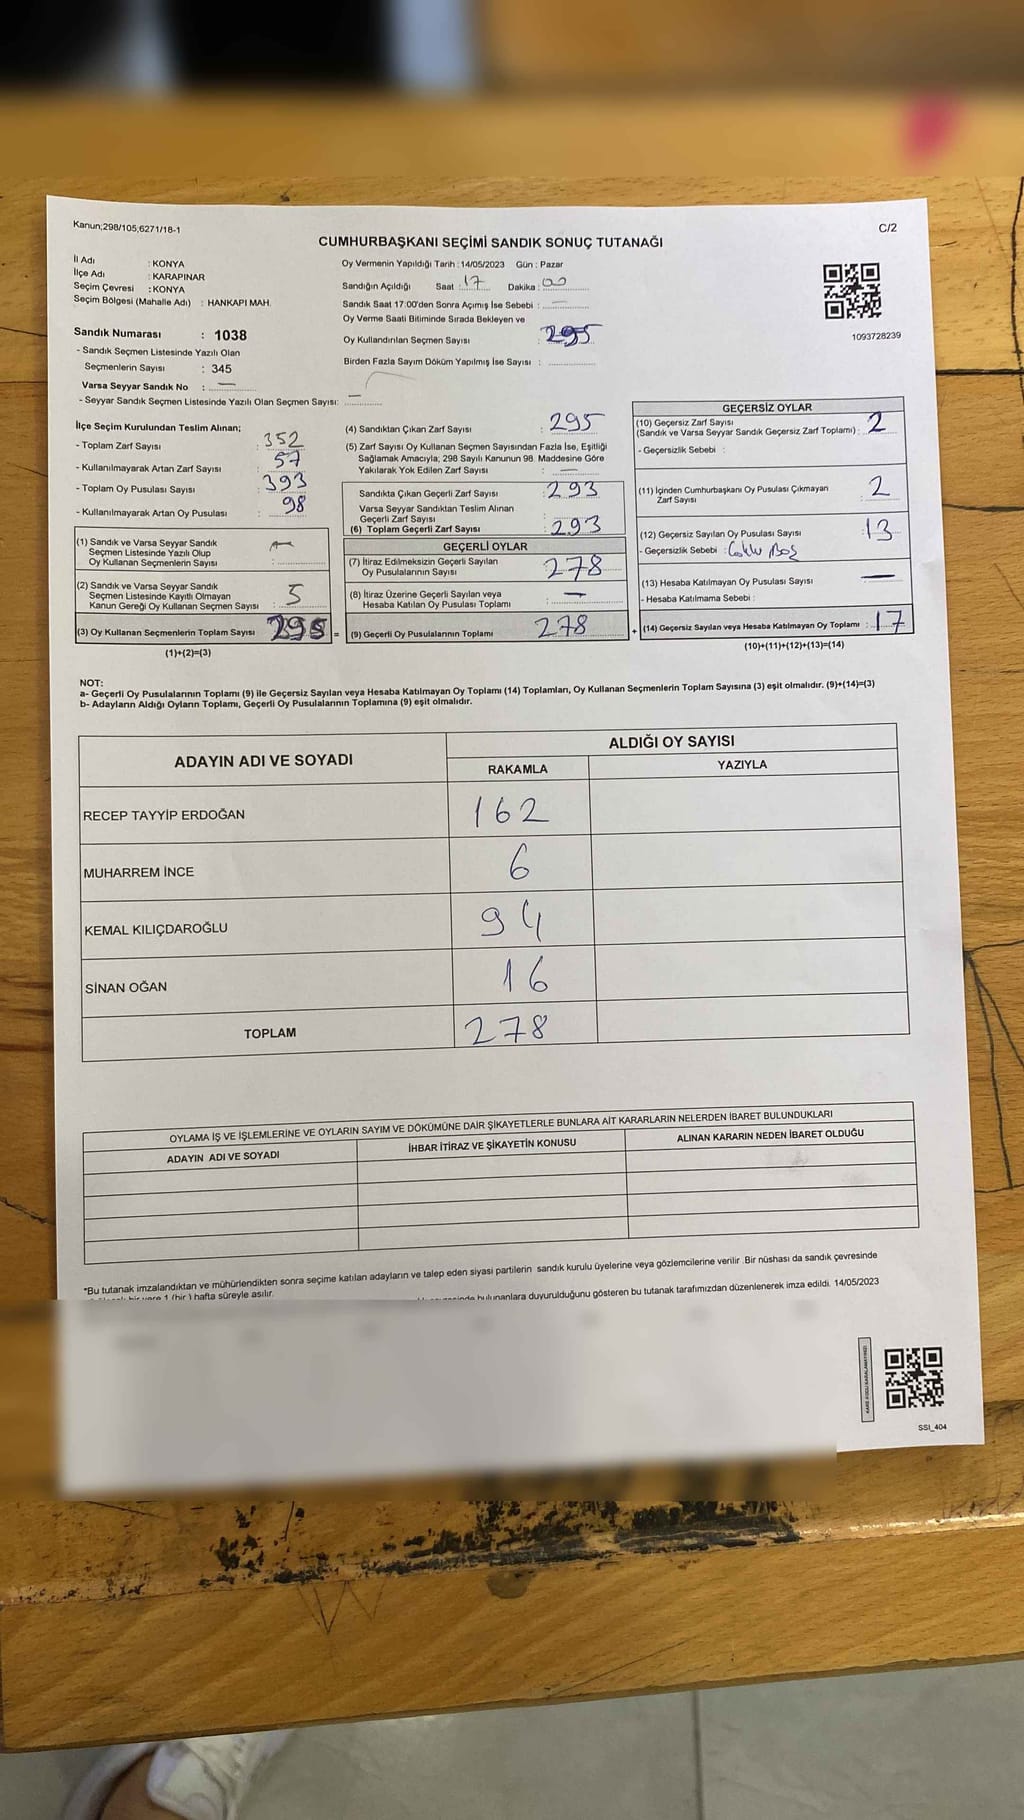 Kanun;298/105,6271/18-1
C/2
CUMHURBAŞKANI SEÇİMİ SANDIK SONUÇ TUTANAĞI
İl Adı : KONYA
İlçe Adı : KARAPINAR
Seçim Çevresi : KONYA
Seçim Bölgesi (Mahalle Adı) : HANKAPI MAH.
Sandık Numarası : 1038
- Sandık Seçmen Listesinde Yazılı Olan
Seçmenlerin Sayısı : 345
Varsa Seyyar Sandık No : —
- Seyyar Sandık Seçmen Listesinde Yazılı Olan Seçmen Sayısı: —
Oy Vermenin Yapıldığı Tarih : 14/05/2023 Gün : Pazar
Sandığın Açıldığı Saat : 17 Dakika : 00
Sandık Saat 17:00'den Sonra Açımış İse Sebebi : —
Oy Verme Saati Bitiminde Sırada Bekleyen ve
Oy Kullandırılan Seçmen Sayısı : 295
Birden Fazla Sayım Döküm Yapılmış İse Sayısı :
1093728239
İlçe Seçim Kurulundan Teslim Alınan;
- Toplam Zarf Sayısı : 352
- Kullanılmayarak Artan Zarf Sayısı : 57
- Toplam Oy Pusulası Sayısı : 393
- Kullanılmayarak Artan Oy Pusulası : 98
(1) Sandık ve Varsa Seyyar Sandık
Seçmen Listesinde Yazılı Olup
Oy Kullanan Seçmenlerin Sayısı :
(2) Sandık ve Varsa Seyyar Sandık
Seçmen Listesinde Kayıtlı Olmayan
Kanun Gereği Oy Kullanan Seçmen Sayısı : 5
(3) Oy Kullanan Seçmenlerin Toplam Sayısı 295 =
(1)+(2)=(3)
(4) Sandıktan Çıkan Zarf Sayısı : 295
(5) Zarf Sayısı Oy Kullanan Seçmen Sayısından Fazla İse, Eşitliği
Sağlamak Amacıyla; 298 Sayılı Kanunun 98. Maddesine Göre
Yakılarak Yok Edilen Zarf Sayısı : —
Sandıkta Çıkan Geçerli Zarf Sayısı : 293
Varsa Seyyar Sandıktan Teslim Alınan
Geçerli Zarf Sayısı
(6) Toplam Geçerli Zarf Sayısı : 293
GEÇERLİ OYLAR
(7) İtiraz Edilmeksizin Geçerli Sayılan
Oy Pusulalarının Sayısı : 278
(8) İtiraz Üzerine Geçerli Sayılan veya
Hesaba Katılan Oy Pusulası Toplamı : —
(9) Geçerli Oy Pusulalarının Toplamı : 278 +
GEÇERSİZ OYLAR
(10) Geçersiz Zarf Sayısı
(Sandık ve Varsa Seyyar Sandık Geçersiz Zarf Toplamı) : 2
- Geçersizlik Sebebi :
(11) İçinden Cumhurbaşkanı Oy Pusulası Çıkmayan
Zarf Sayısı : 2
(12) Geçersiz Sayılan Oy Pusulası Sayısı : 13
- Geçersizlik Sebebi : Çoklu Boş
(13) Hesaba Katılmayan Oy Pusulası Sayısı : —
- Hesaba Katılmama Sebebi :
(14) Geçersiz Sayılan veya Hesaba Katılmayan Oy Toplamı : 17
(10)+(11)+(12)+(13)=(14)
NOT:
a- Geçerli Oy Pusulalarının Toplamı (9) ile Geçersiz Sayılan veya Hesaba Katılmayan Oy Toplamı (14) Toplamları, Oy Kullanan Seçmenlerin Toplam Sayısına (3) eşit olmalıdır. (9)+(14)=(3)
b- Adayların Aldığı Oyların Toplamı, Geçerli Oy Pusulalarının Toplamına (9) eşit olmalıdır.
ADAYIN ADI VE SOYADI
ALDIĞI OY SAYISI
RAKAMLA YAZIYLA
RECEP TAYYİP ERDOĞAN 162
MUHARREM İNCE 6
KEMAL KILIÇDAROĞLU 94
SİNAN OĞAN 16
TOPLAM 278
OYLAMA İŞ VE İŞLEMLERİNE VE OYLARIN SAYIM VE DÖKÜMÜNE DAİR ŞİKAYETLERLE BUNLARA AİT KARARLARIN NELERDEN İBARET BULUNDUKLARI
ADAYIN ADI VE SOYADI İHBAR İTİRAZ VE ŞİKAYETİN KONUSU ALINAN KARARIN NEDEN İBARET OLDUĞU
*Bu tutanak imzalandıktan ve mühürlendikten sonra seçime katılan adayların ve talep eden siyasi partilerin sandık kurulu üyelerine veya gözlemcilerine verilir .Bir nüshası da sandık çevresinde
1 (bir ) hafta süreyle asılır. bulunanlara duyurulduğunu gösteren bu tutanak tarafımızdan düzenlenerek imza edildi. 14/05/2023
SSI_404